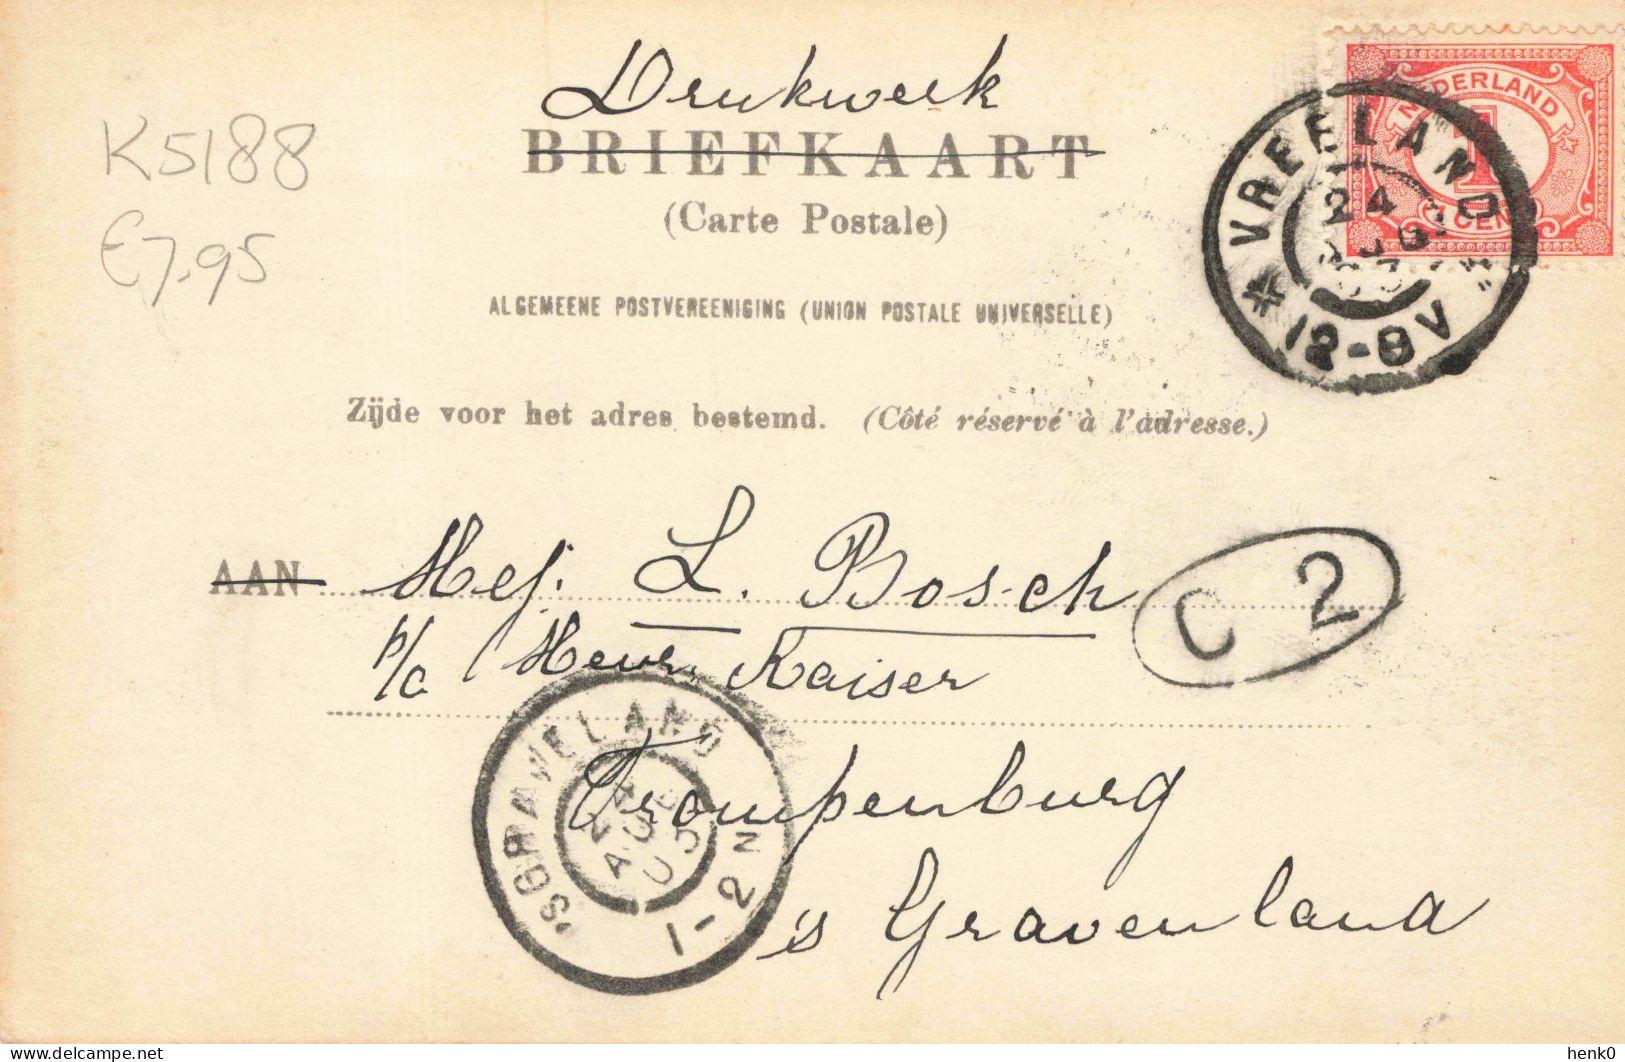 Drukwerk
BRIEFKAART
(Carte Postale)
K5188
€7,95
ALGEMEENE POSTVEREENIGING (UNION POSTALE UNIVERSELLE)
NEDERLAND
1
1 CENT
VREELAND
24
AUG
12-8V
Zijde voor het adres bestemd. (Côté réservé à l'adresse.)
AAN Mej. L. Bosch
C 2
p/c Heer Kaiser
'S GRAVELAND
24
AUG
05
1-2N
Trompenburg
's Gravenland
delcampe.net
henk0